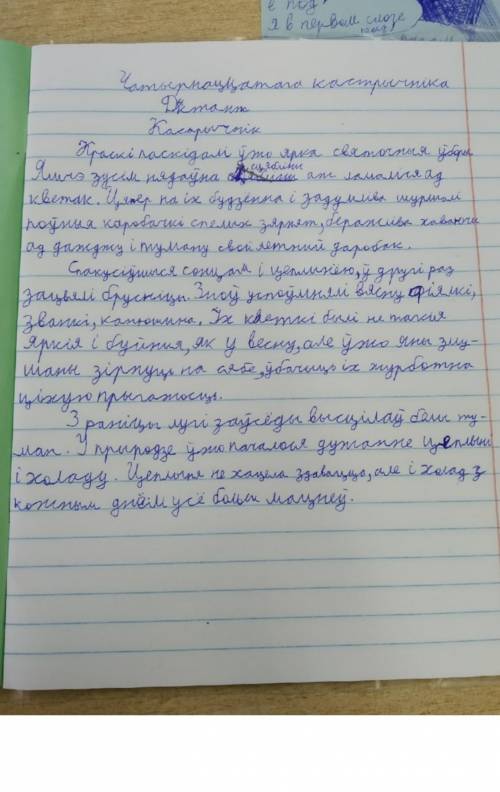 е под
я в первом слоге
Чатырнаццатага кастрычніка
Дыктант
Касарычнік
Краскі паскідалі ўжо ярка святочныя ўборы
Яшчэ зусім нядаўна сцябліны аж ламаліся ад
кветак. Цяпер па іх будзенна і задумліва шуршалі
поўныя каробачкі спелых зярнят, беражліва хаваючы
ад дажджу і туману свой летний даробак.
Спакусіўшыся сонцам і цеплынёю, ў другі раз
зацвялі брусніцы. Зноў успоўмнялі вясну фіялкі,
званкі, канюшына. Іх кветкі былі не такія
яркія і буйныя, як у весну, але ўжо яны зму-
шаны зірнуць на сябе, ўбачыць іх журботна
ціхую прыгажосць.
З раніцы лугі заўсёды высцілаў белы ту-
ман. У прыродзе ўжо пачалося дужанне цеплыні
і холаду. Цеплыня не хацела здавацца, але і холад з
кожным днём усё больш мацнеў.